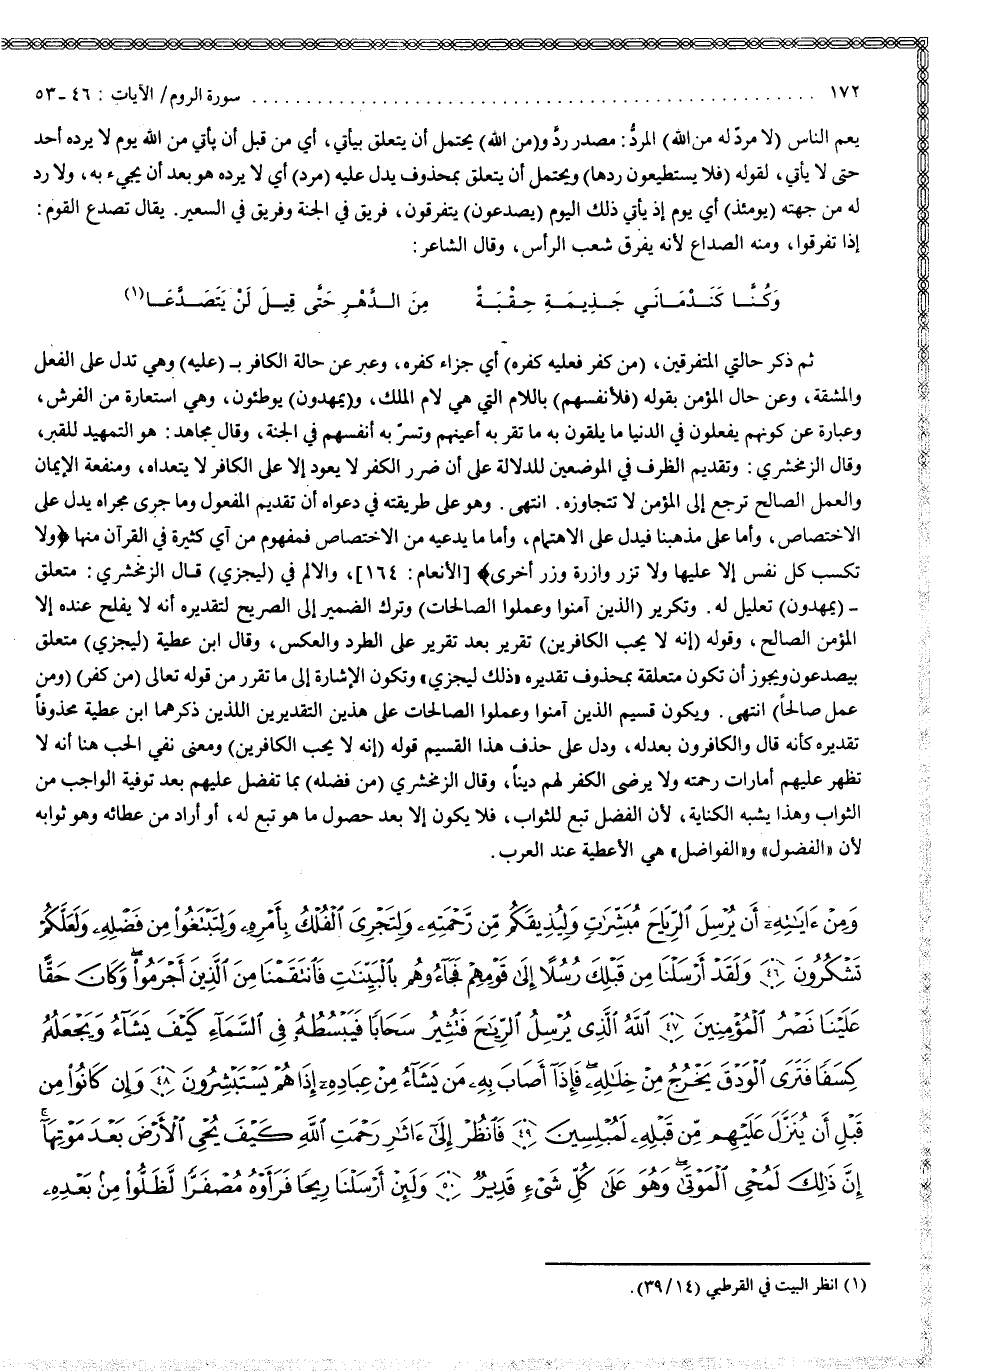 ١٧٢ ............................................................ سورة الروم/ الآيات: ٤٦-٥٣
يعم الناس (لا مردّ له من الله) المردُّ: مصدر ردَّ و(من الله) يحتمل أن يتعلق بيأتي، أي من قبل أن يأتي من الله يوم لا يرده أحد
حتى لا يأتي، لقوله (فلا يستطيعون ردها) ويحتمل أن يتعلق بمحذوف يدل عليه (مرد) أي لا يرده هو بعد أن يجيء به، ولا رد
له من جهته (يومئذ) أي يوم إذ يأتي ذلك اليوم (يصدعون) يتفرقون، فريق في الجنة وفريق في السعير. يقال تصدع القوم:
إذا تفرقوا، ومنه الصداع لأنه يفرق شعب الرأس، وقال الشاعر:
وَكُنَّا كَنَدْمَانَي جَذِيمَةِ حِقْبَةً مِنَ الدَّهْرِ حَتَّى قِيلَ لَنْ يَتَصَدَّعَا(١)
ثم ذكر حالتي المتفرقين، (من كفر فعليه كفره) أي جزاء كفره، وعبر عن حالة الكافر بـ (عليه) وهي تدل على الفعل
والمشقة، وعن حال المؤمن بقوله (فلأنفسهم) باللام التي هي لام الملك، و(يمهدون) يوطئون، وهي استعارة من الفرش،
وعبارة عن كونهم يفعلون في الدنيا ما يلقون به ما تقر به أعينهم وتسرّ به أنفسهم في الجنة، وقال مجاهد: هو التمهيد للقبر،
وقال الزمخشري: وتقديم الظرف في الموضعين للدلالة على أن ضرر الكفر لا يعود إلا على الكافر لا يتعداه، ومنفعة الإيمان
والعمل الصالح ترجع إلى المؤمن لا تتجاوزه. انتهى. وهو على طريقته في دعواه أن تقديم المفعول وما جرى مجراه يدل على
الاختصاص، وأما على مذهبنا فيدل على الاهتمام، وأما ما يدعيه من الاختصاص فمفهوم من آي كثيرة في القرآن منها ﴿ولا
تكسب كل نفس إلا عليها ولا تزر وازرة وزر أخرى﴾ [الأنعام: ١٦٤]، والالم في (ليجزي) قال الزمخشري: متعلق
ـ (يمهدون) تعليل له. وتكرير (الذين آمنوا وعملوا الصالحات) وترك الضمير إلى الصريح لتقديره أنه لا يفلح عنده إلا
المؤمن الصالح، وقوله (إنه لا يحب الكافرين) تقرير بعد تقرير على الطرد والعكس، وقال ابن عطية (ليجزي) متعلق
بيصدعون ويجوز أن تكون متعلقة بمحذوف تقديره «ذلك ليجزي» وتكون الإشارة إلى ما تقرر من قوله تعالى (من كفر) (ومن
عمل صالحاً) انتهى. ويكون قسيم الذين آمنوا وعملوا الصالحات على هذين التقديرين اللذين ذكرهما ابن عطية محذوفاً
تقديره كأنه قال والكافرون بعدله، ودل على حذف هذا القسيم قوله (إنه لا يحب الكافرين) ومعنى نفي الحب هنا أنه لا
تظهر عليهم أمارات رحمته ولا يرضى الكفر لهم ديناً، وقال الزمخشري (من فضله) بما تفضل عليهم بعد توفية الواجب من
الثواب وهذا يشبه الكناية، لأن الفضل تبع للثواب، فلا يكون إلا بعد حصول ما هو تبع له، أو أراد من عطائه وهو ثوابه
لأن «الفضول» و«الفواضل» هي الأعطية عند العرب.
وَمِنْ ءَايَٰتِهِۦٓ أَن يُرْسِلَ ٱلرِّيَاحَ مُبَشِّرَٰتٍ وَلِيُذِيقَكُم مِّن رَّحْمَتِهِۦ وَلِتَجْرِيَ ٱلْفُلْكُ بِأَمْرِهِۦ وَلِتَبْتَغُوا۟ مِن فَضْلِهِۦ وَلَعَلَّكُمْ
تَشْكُرُونَ ٤٦ وَلَقَدْ أَرْسَلْنَا مِن قَبْلِكَ رُسُلًا إِلَىٰ قَوْمِهِمْ فَجَآءُوهُم بِٱلْبَيِّنَٰتِ فَٱنتَقَمْنَا مِنَ ٱلَّذِينَ أَجْرَمُوا۟ ۖ وَكَانَ حَقًّا
عَلَيْنَا نَصْرُ ٱلْمُؤْمِنِينَ ٤٧ ٱللَّهُ ٱلَّذِى يُرْسِلُ ٱلرِّيَٰحَ فَتُثِيرُ سَحَابًا فَيَبْسُطُهُۥ فِى ٱلسَّمَآءِ كَيْفَ يَشَآءُ وَيَجْعَلُهُۥ
كِسَفًا فَتَرَى ٱلْوَدْقَ يَخْرُجُ مِنْ خِلَٰلِهِۦ ۖ فَإِذَآ أَصَابَ بِهِۦ مَن يَشَآءُ مِنْ عِبَادِهِۦٓ إِذَا هُمْ يَسْتَبْشِرُونَ ٤٨ وَإِن كَانُوا۟ مِن
قَبْلِ أَن يُنَزَّلَ عَلَيْهِم مِّن قَبْلِهِۦ لَمُبْلِسِينَ ٤٩ فَٱنظُرْ إِلَىٰٓ ءَاثَٰرِ رَحْمَتِ ٱللَّهِ كَيْفَ يُحْىِ ٱلْأَرْضَ بَعْدَ مَوْتِهَآ ۚ
إِنَّ ذَٰلِكَ لَمُحْىِ ٱلْمَوْتَىٰ ۖ وَهُوَ عَلَىٰ كُلِّ شَىْءٍ قَدِيرٌ ٥٠ وَلَئِنْ أَرْسَلْنَا رِيحًا فَرَأَوْهُ مُصْفَرًّا لَّظَلُّوا۟ مِنۢ بَعْدِهِۦ
(١) انظر البيت في القرطبي (٣٩/١٤).